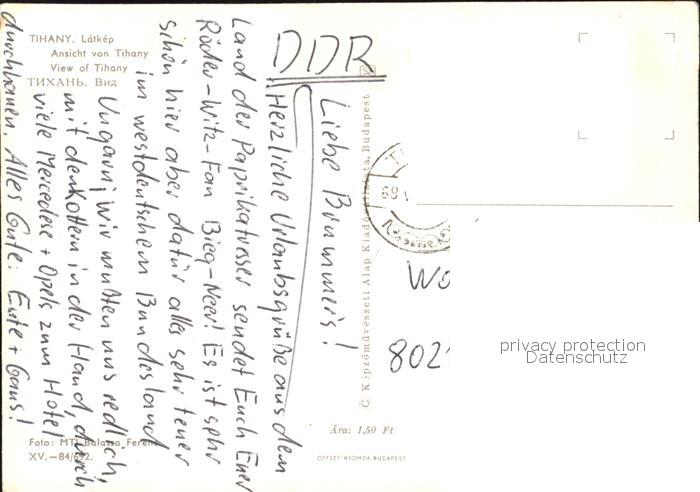 TIHANY. Látkép
Ansicht von Tihany
View of Tihany
ТИХАНЬ. Вид
DDR
Liebe Brummeis!
Herzliche Urlaubsgrüße aus dem
Land der Paprikafresser sendet Euch Euer
Röder-Witz-Fan Bieg-Neer! Es ist sehr
schön hier aber dafür alles sehr teuer
im westdeutschen Bundesland
Ungarn; wir mußten uns redlich,
mit den Koffern in der Hand, durch
viele Mercedese + Opels zum Hotel
durchhauen. Alles Gute: Ente + Gans!
© Képzőművészeti Alap Kiadóvállalata, Budapest
69
Wo
802
privacy protection
Datenschutz
Ára: 1,50 Ft
OFFSET-NYOMDA, BUDAPEST
Foto: MTI Balassa Ferenc
XV.—84/692.